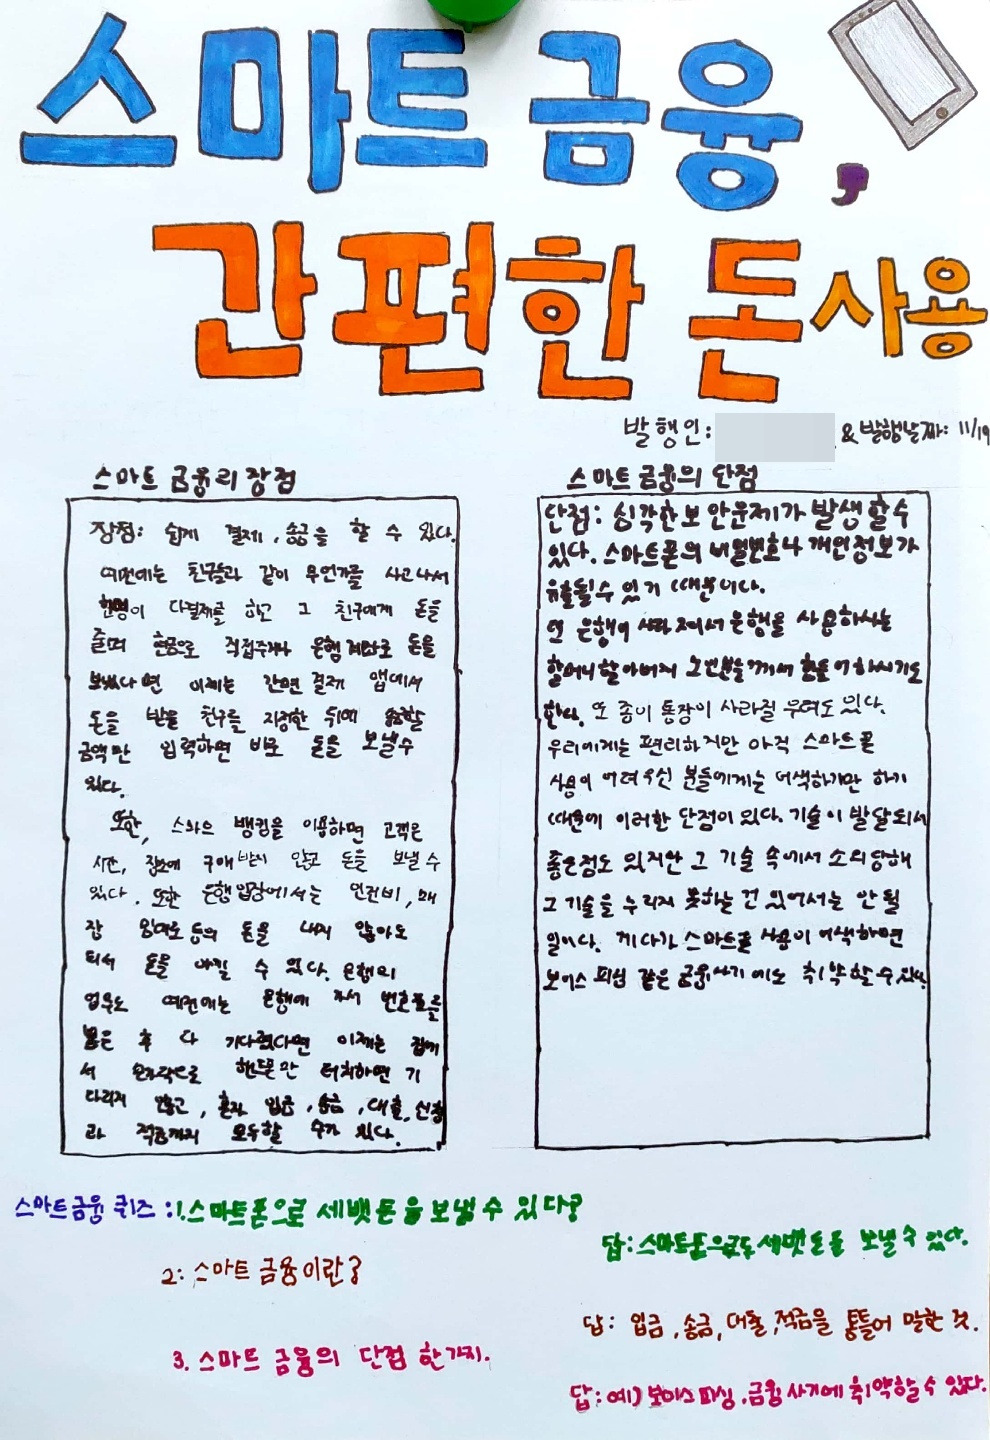 스마트 금융,
간편한 돈 사용
발행인: & 발행날짜: 11/19
스마트 금융의 장점
장점: 쉽게 결제, 송금을 할 수 있다.
예전에는 친구들과 같이 무언가를 사고나서
한명이 다 결제를 하고 그 친구에게 돈을
줄때 현금으로 직접주거나 은행계좌로 돈을
보냈다면 이제는 간편결제 앱에서
돈을 받을 친구를 지정한 뒤에 송금할
금액만 입력하면 바로 돈을 보낼수
있다.
또한, 스마트 뱅킹을 이용하면 고객은
시간, 장소에 구애받지 않고 돈을 보낼 수
있다. 또한 은행입장에서는 인건비, 매
장 임대료 등의 돈을 내지 않아도
되서 돈을 아낄 수 있다. 은행의
업무도 예전에는 은행에 가서 번호표를
뽑은 후 다 기다렸다면 이제는 집에
서 손가락으로 핸드폰만 터치하면 기
다리지 않고, 혼자 입금, 송금, 대출, 신청
과 적금까지 모두할 수가 있다.
스마트 금융의 단점
단점: 심각한 보안문제가 발생할수
있다. 스마트폰의 비밀번호나 개인정보가
유출될수 있기 때문이다.
또 은행이 사라져서 은행을 사용하시는
할머니할아버지 노인분들께서 힘들어하시기도
한다. 또 종이 통장이 사라질 우려도 있다.
우리에게는 편리하지만 아직 스마트폰
사용이 어려우신 분들에게는 어색하기만 하기
때문에 이러한 단점이 있다. 기술이 발달되서
좋은점도 있지만 그 기술 속에서 소외당해
그 기술을 누리지 못하는 건 있어서는 안될
일이다. 게다가 스마트폰 사용이 어색하면
보이스 피싱 같은 금융사기에도 취약할수있다.
스마트금융 퀴즈 :1.스마트폰으로 세뱃돈을 보낼 수 있다?
답: 스마트폰으로도 세뱃돈을 보낼 수 있다.
2: 스마트 금융이란?
답: 입금, 송금, 대출, 적금을 통틀어 말한 것.
3. 스마트 금융의 단점 한가지.
답: 예) 보이스피싱, 금융사기에 취약할 수 있다.